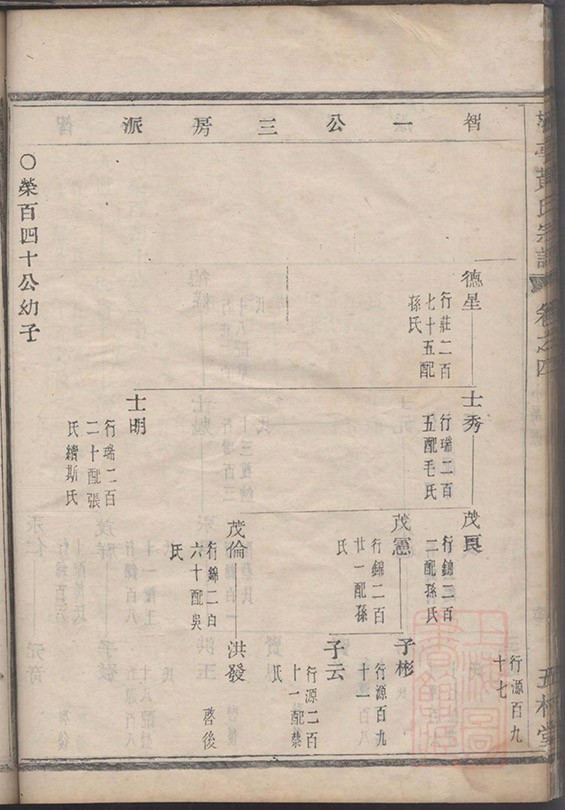 黃氏宗譜
卷之四
智一公三房派
德星
行莊二百
七十五配
孫氏
士秀
行瑞二百
五配毛氏
士明
行瑞二百
二十配張
氏續斯氏
茂良
行錦二百
二配孫氏
茂憲
行錦二百
廿一配孫
氏
茂倫
行錦二百
六十配吳
氏
行源百九
十七
子彬
行源百九
十一
子云
行源二百
十一配蔡
氏
洪發
啓後
○榮百四十公幼子